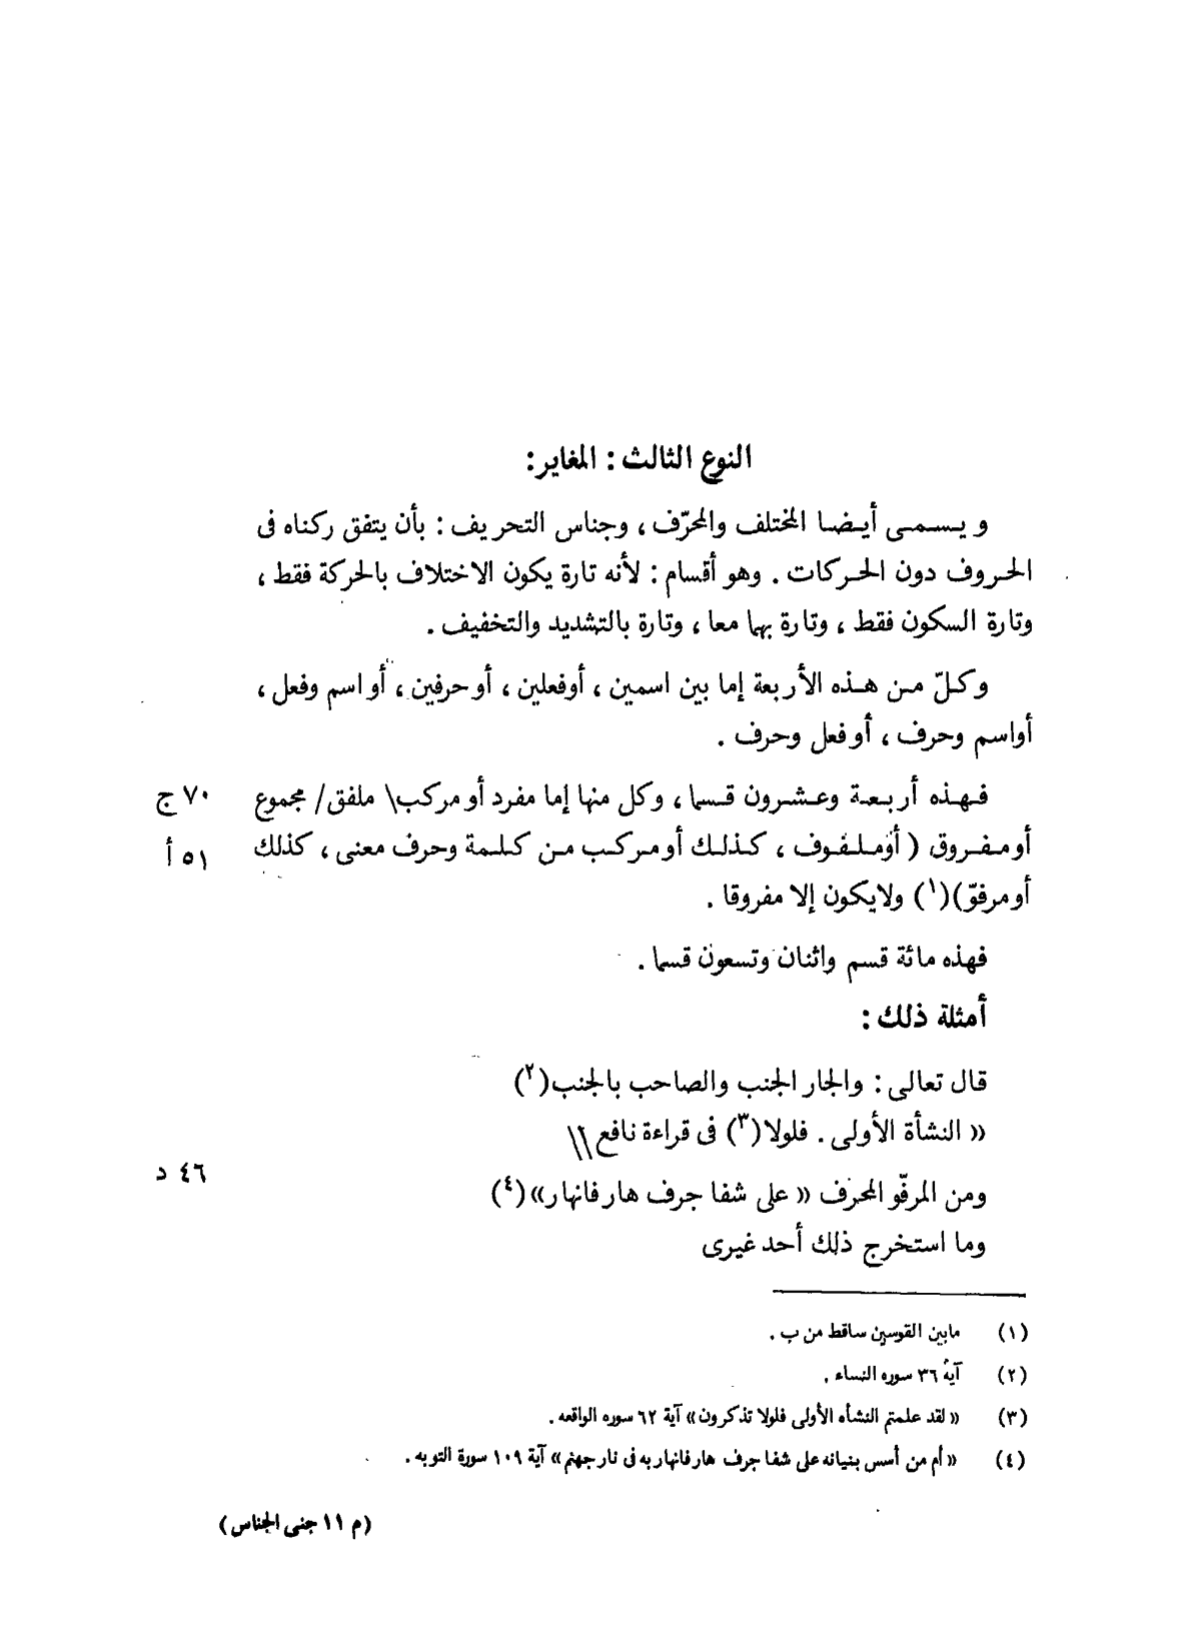 النوع الثالث : المغاير:
ويسمى أيضا المختلف والمحرّف ، وجناس التحريف : بأن يتفق ركناه فى
الحروف دون الحركات . وهو أقسام : لأنه تارة يكون الاختلاف بالحركة فقط ،
وتارة السكون فقط ، وتارة بهما معا ، وتارة بالتشديد والتخفيف .
وكلّ من هذه الأربعة إما بين اسمين ، أوفعلين ، أو حرفين ، أو اسم وفعل ،
أواسم وحرف ، أو فعل وحرف .
فهذه أربعة وعشرون قسما ، وكل منها إما مفرد أو مركب\ ملفق/ مجموع ٧٠ ج
أو مفروق ( أوملفوف ، كذلك أو مركب من كلمة وحرف معنى ، كذلك ٥١ أ
أو مرفوّ)(١) ولايكون إلا مفروقا .
فهذه مائة قسم واثنان وتسعون قسما .
أمثلة ذلك :
قال تعالى : والجار الجنب والصاحب بالجنب(٢)
« النشأة الأولى . فلولا(٣) فى قراءة نافع\\
٤٦ د
ومن المرفّو المحرف « على شفا جرف هار فانهار»(٤)
وما استخرج ذلك أحد غيرى
(١) مابين القوسين ساقط من ب .
(٢) آية ٣٦ سوره النساء .
(٣) « لقد علمتم النشأه الأولى فلولا تذكرون» آية ٦٢ سوره الواقعه .
(٤) « أم من أسس بنيانه على شفا جرف هار فانهار به فى نار جهنم » آية ١٠٩ سورة التوبه .
(م ١١ جنى الجناس)